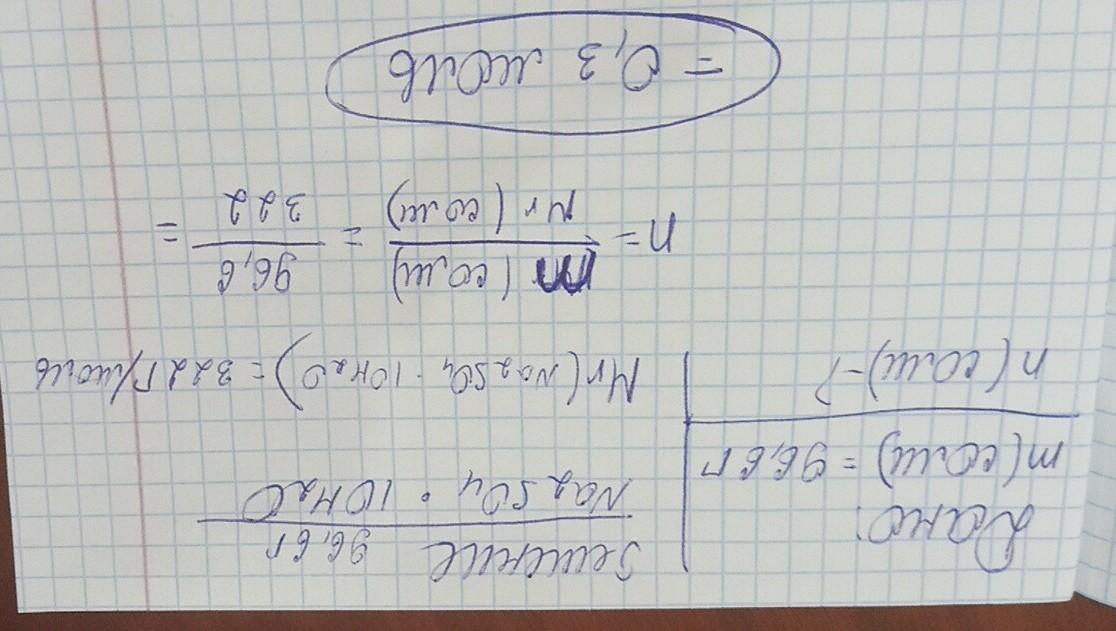 Дано:
m(соли) = 96,6 г
n(соли) - ?
Решение 96,6 г
Na2SO4 · 10H2O
Mr(Na2SO4 · 10H2O) = 322 г/моль
n = m(соли) / Mr(соли) = 96,6 / 322 =
= 0,3 моль